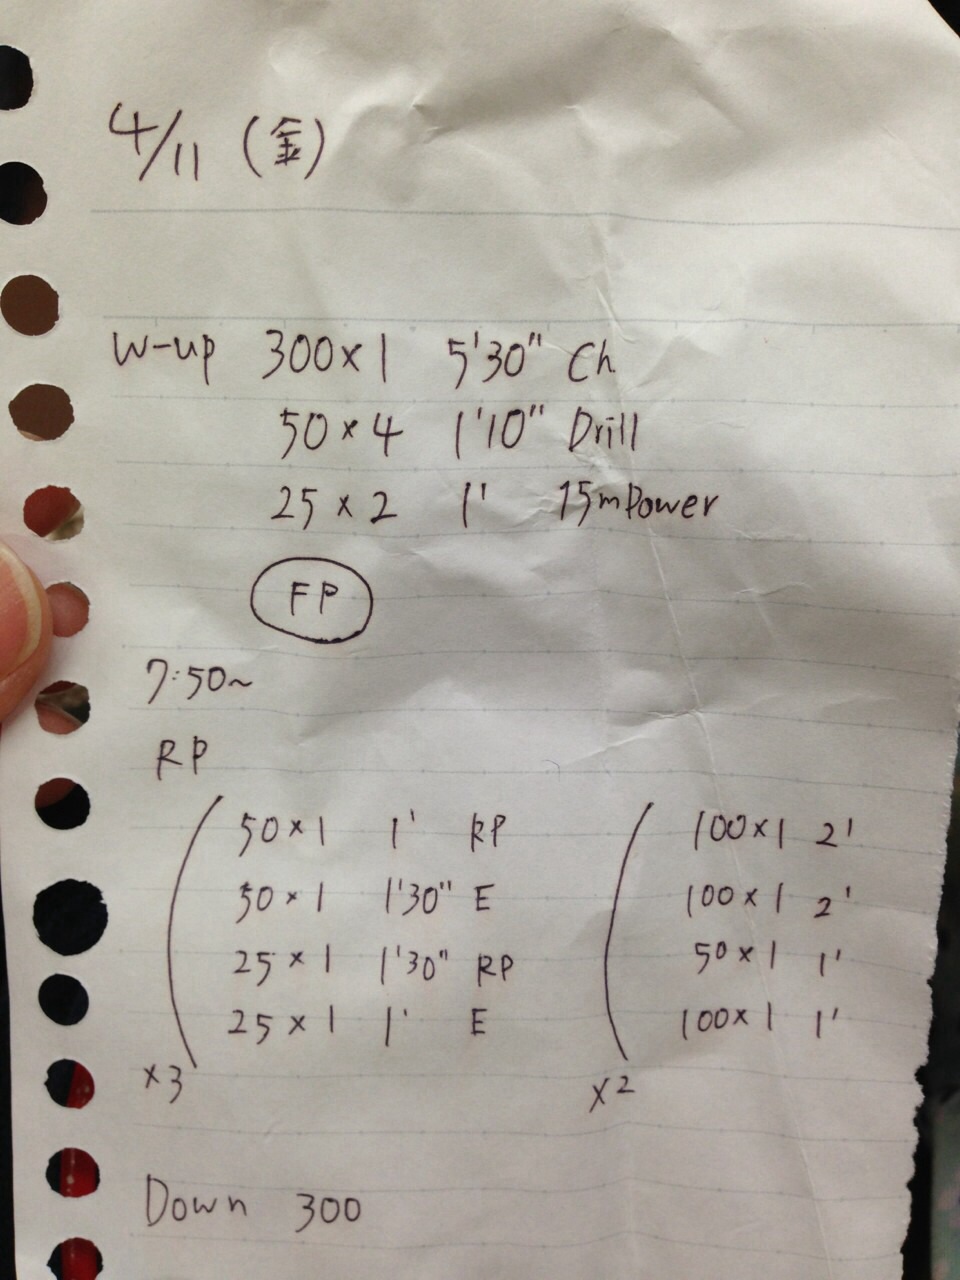 4/11 (金)
W-up 300×1 5'30" Ch
50×4 1'10" Drill
25×2 1' 15mPower
FP
7:50~
RP
50×1 1' RP
50×1 1'30" E
25×1 1'30" RP
25×1 1' E
×3
100×1 2'
100×1 2'
50×1 1'
100×1 1'
×2
Down 300